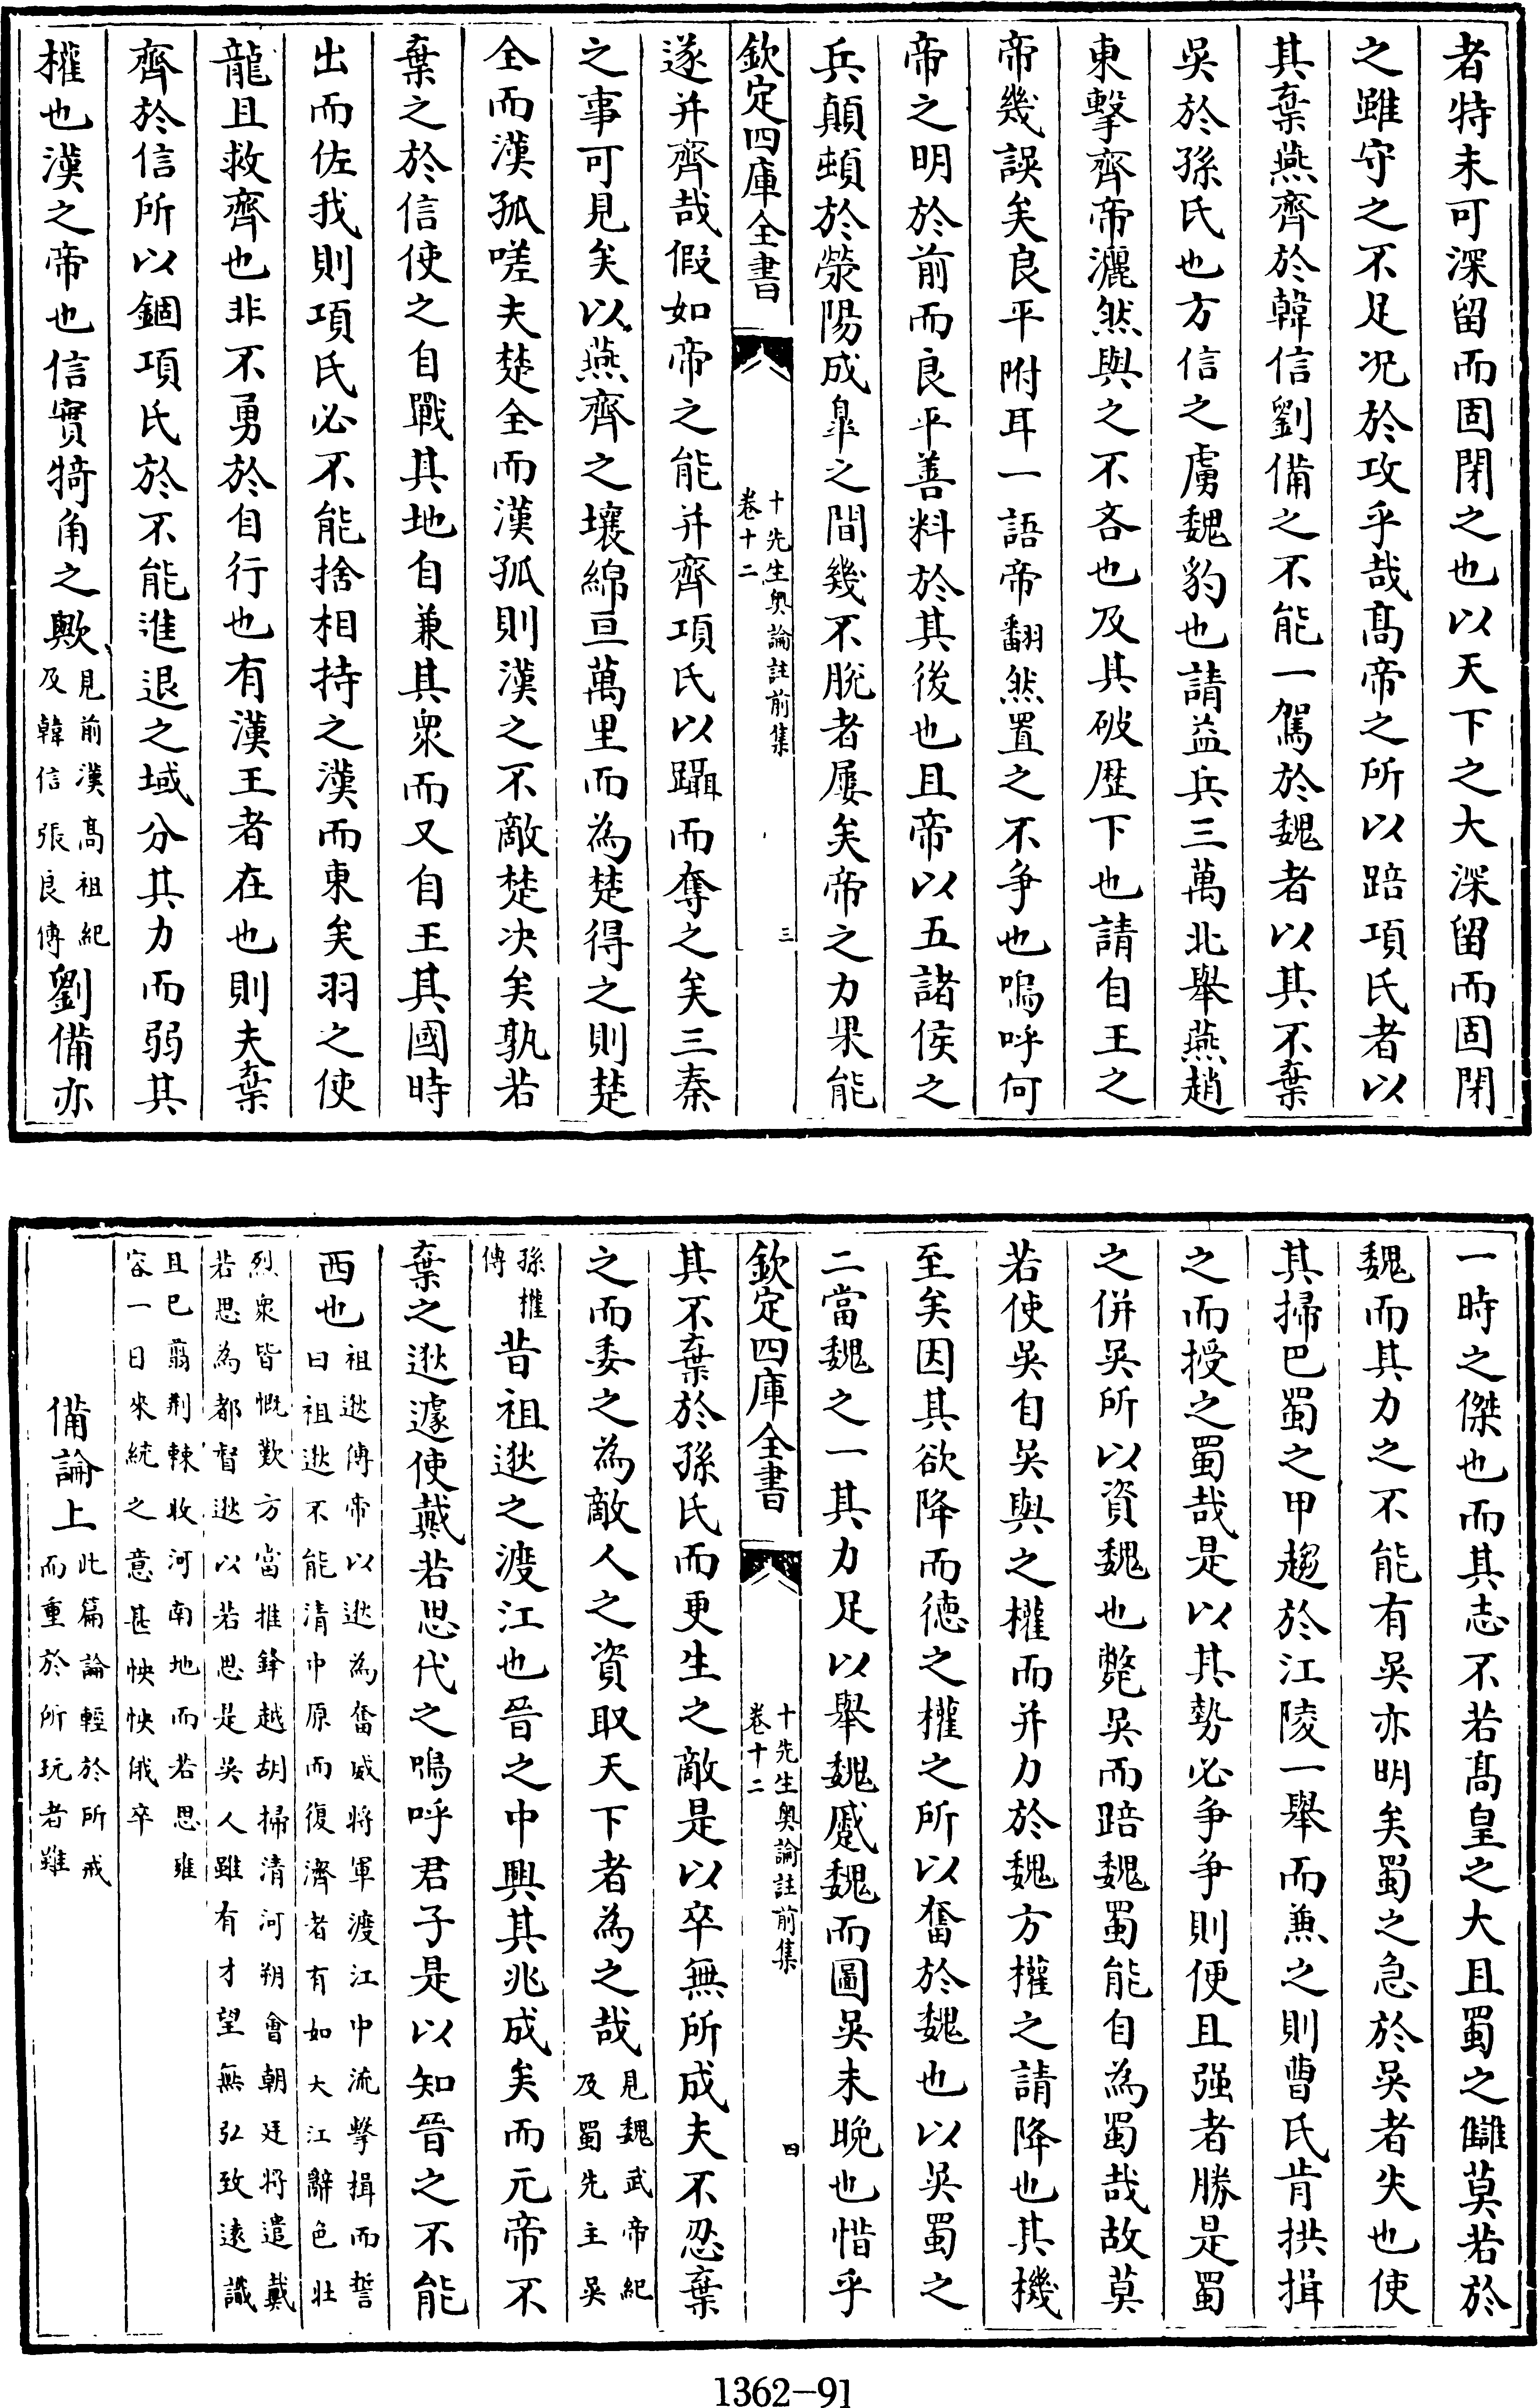 者特未可深留而固閉之也以天下之大深留而固閉
之雖守之不足况於攻乎哉髙帝之所以踣項氏者以
其棄燕齊於韓信劉備之不能一駕於魏者以其不棄
吳於孫氏也方信之虜魏豹也請益兵三萬北舉燕趙
東擊齊帝灑然與之不吝也及其破歴下也請自王之
帝幾誤矣良平附耳一語帝翻然置之不爭也嗚呼何
帝之明於前而良平善料於其後也且帝以五諸侯之
兵顛蝢於滎陽成臯之間幾不脫者屢矣帝之力果能
欽定四庫全書
十先生奥論註前集
卷十二
三
遂并齊哉假如帝之能并齊項氏以躡而奪之矣三秦
之事可見矣以燕齊之壤綿亘萬里而為楚得之則楚
全而漢孤嗟夫楚全而漢孤則漢之不敵楚决矣孰若
棄之於信使之自戰其地自兼其衆而又自王其國時
出而佐我則項氏必不能捨相持之漢而東矣羽之使
龍且救齊也非不勇於自行也有漢王者在也則夫棄
齊於信所以錮項氏於不能進退之域分其力而弱其
權也漢之帝也信實犄角之歟見前漢髙祖紀及韓信張良傳劉備亦
一時之傑也而其志不若髙皇之大且蜀之讎莫若於
魏而其力之不能有吳亦明矣蜀之急於吳者失也使
其掃巴蜀之甲趨於江陵一舉而兼之則曹氏肯拱揖
之而授之蜀哉是以其勢必爭爭則便且强者勝是蜀
之併吳所以資魏也斃吳而踣魏蜀能自為蜀哉故莫
若使吳自吳與之權而并力於魏方權之請降也其機
至矣因其欲降而德之權之所以奮於魏也以吳蜀之
二當魏之一其力足以舉魏蹙魏而圖吳未晚也惜乎
欽定四庫全書
十先生奥論註前集
卷十二
四
其不棄於孫氏而更生之敵是以卒無所成夫不忍棄
之而委之為敵人之資取天下者為之哉見魏武帝紀及蜀先主吳
孫權傳昔祖逖之渡江也晉之中興其兆成矣而元帝不
棄之逖遽使戴若思代之嗚呼君子是以知晉之不能
西也祖逖傳帝以逖為奮威將軍渡江中流擊揖而誓曰祖逖不能清中原而復濟者有如大江辭色壯
烈衆皆慨歎方當推鋒越胡掃清河朔會朝廷將遣戴若思為都督逖以若思是吳人雖有才望無弘致逺識
且已翦荆棘收河南地而若思雍容一日來統之意甚怏怏俄卒
備論上此篇論輕於所戒而重於所玩者雖
1362-91